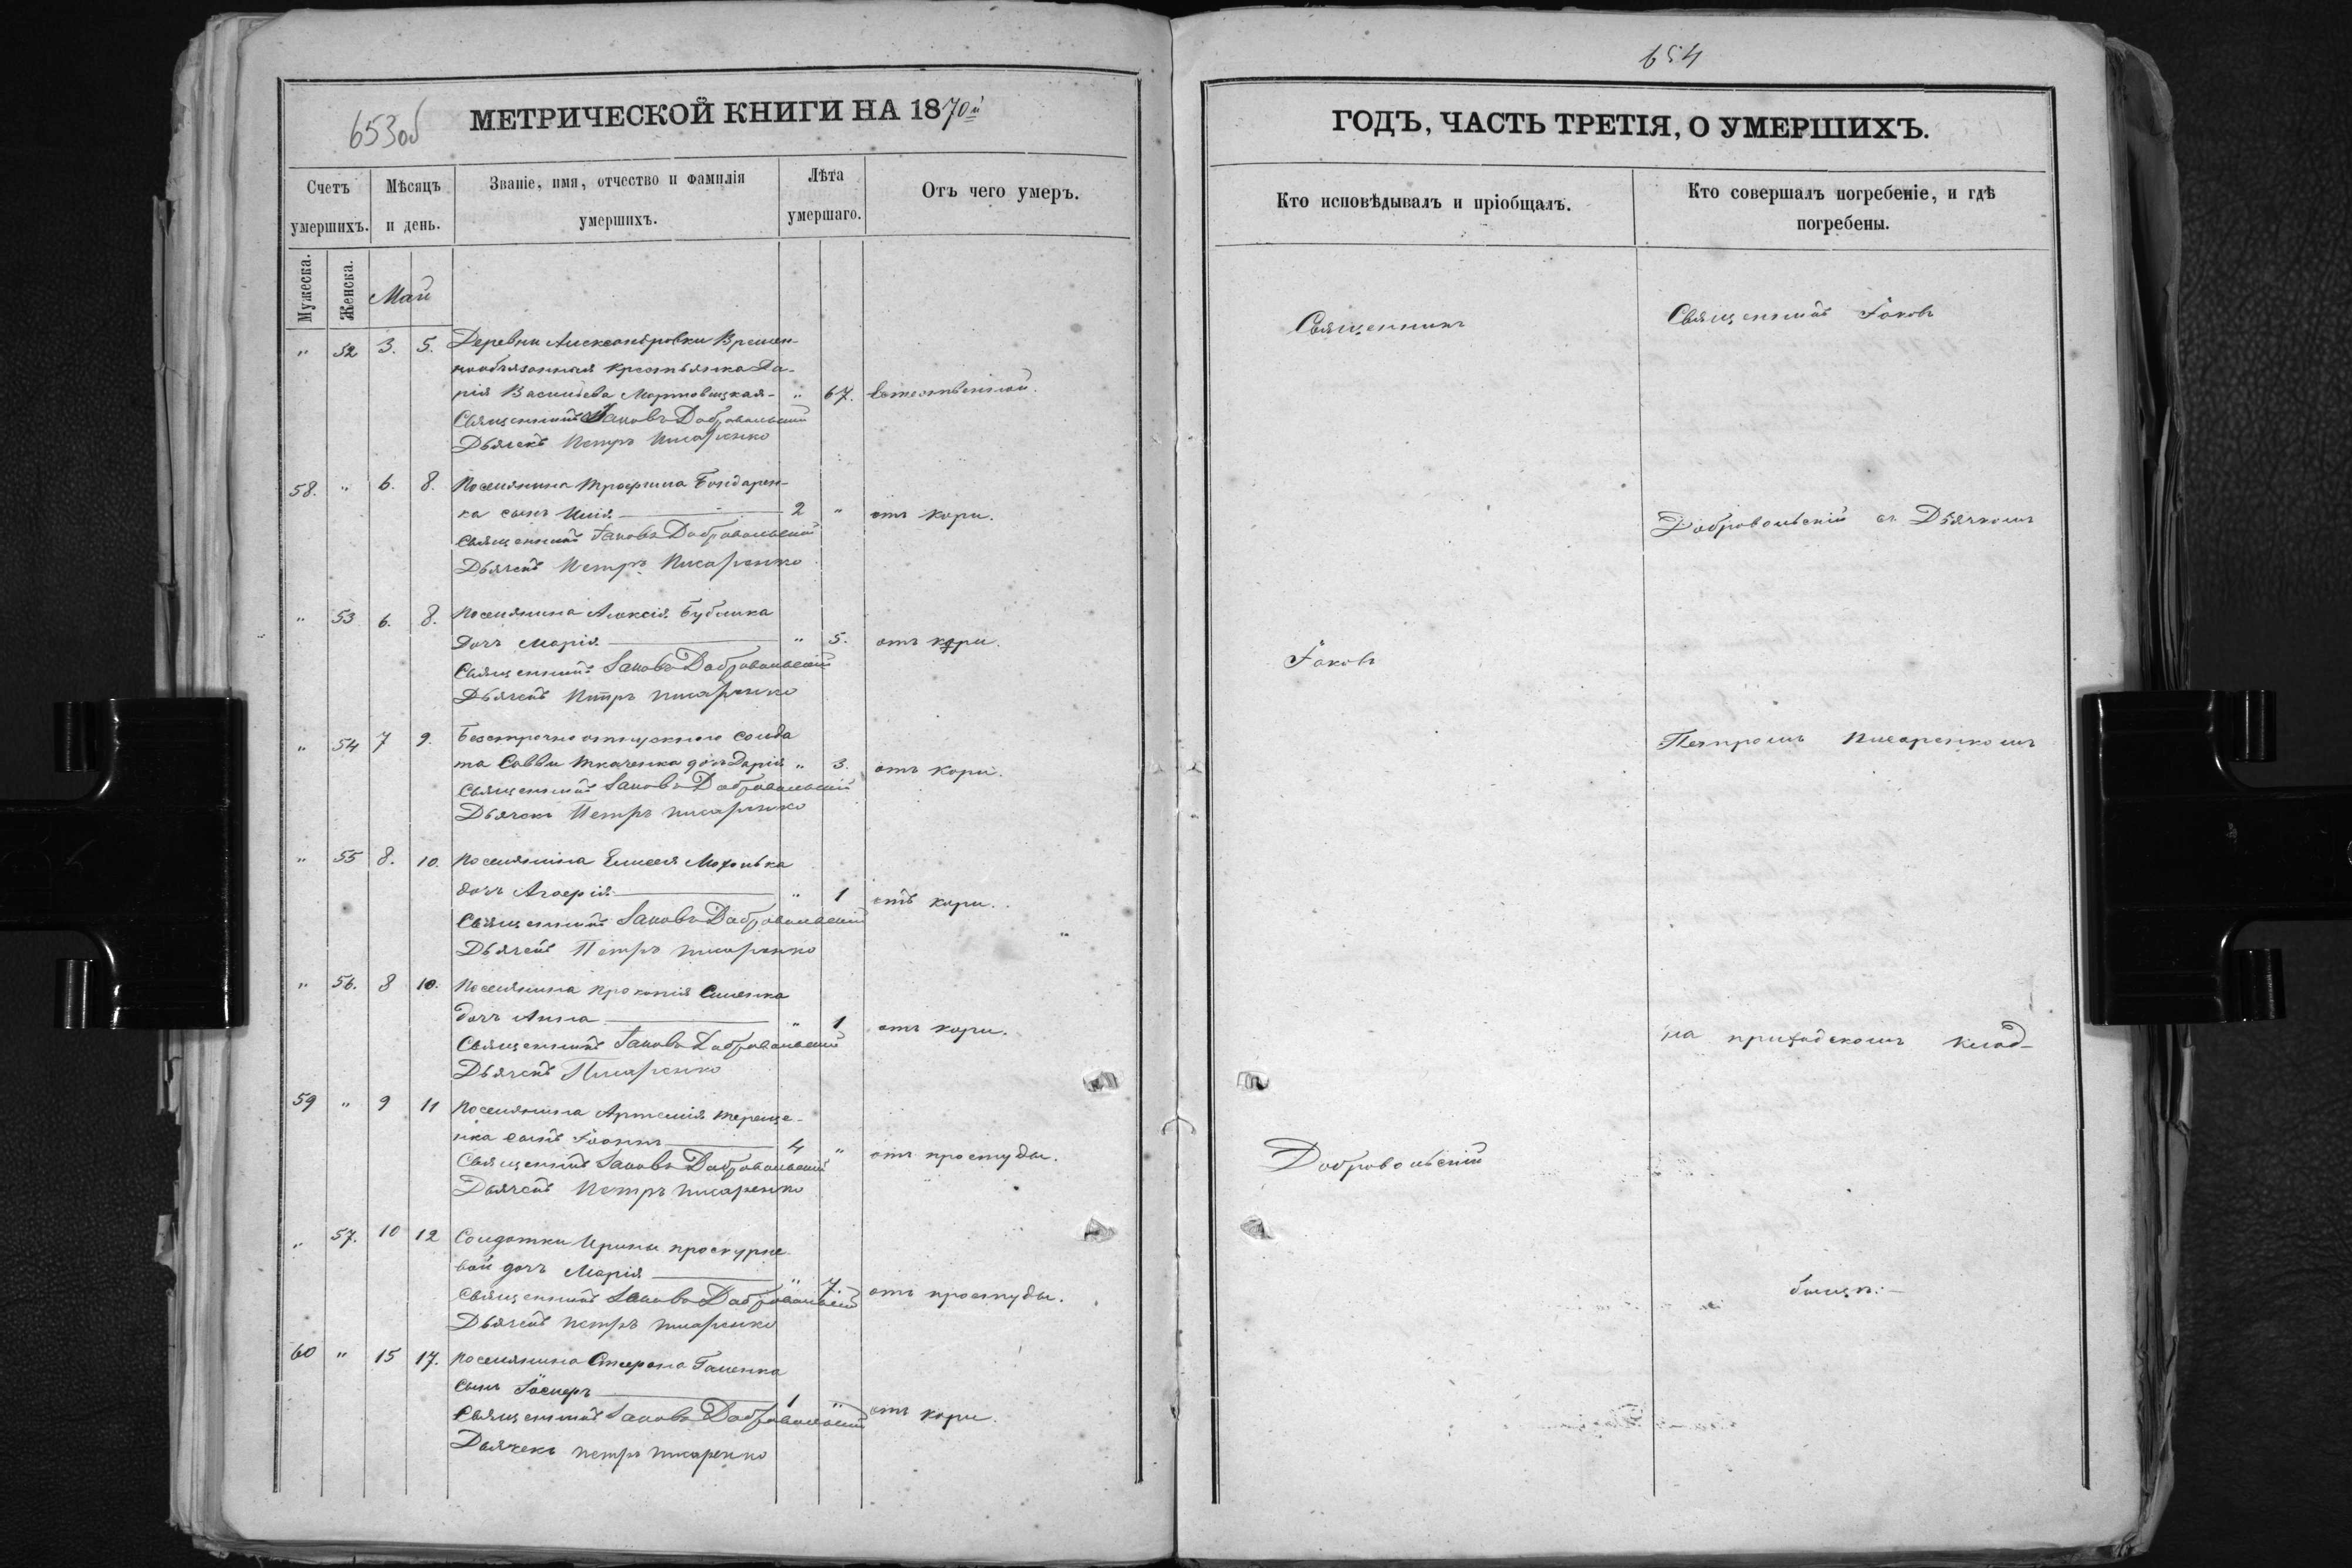 653об
МЕТРИЧЕСКОЙ КНИГИ НА 1870й
Счетъ умершихъ.
Мѣсяцъ и день.
Званіе, имя, отчество и фамилія умершихъ.
Лѣта умершаго.
Отъ чего умеръ.
Мужеска.
Женска.
Май
" 52 3. 5. Деревни Александровки Времен-
нообязанная крестьянка Да-
рія Васильева Мартовицкая - " 67. Естественной.
Священникъ Іаковъ Добровольский
Дьячекъ Петръ Писаренко
58. " 6. 8. Поселянина Трофима Бондарен-
ка сынъ Илія 2 " отъ кори.
Священникъ Іаковъ Добровольский
Дьячекъ Петръ Писаренко
" 53 6. 8. Поселянина Алексія Бублика
дочь Марія " 5. отъ кори.
Священникъ Іаковъ Добровольскій
Дьячекъ Петръ Писаренко
" 54 7 9. Безсрочно отпускного солда
та Саввы Ткаченка дочь Дарія " 3. отъ кори.
Священникъ Іаковъ Добровольскій
Дьячекъ Петръ Писаренко
" 55 8. 10. Поселянина Елисея Мохонька
дочь Агафія " 1 отъ кори.
Священникъ Іаковъ Добровольскій
Дьячекъ Петръ Писаренко
" 56. 8 10. Поселянина Прокопія
дочь Анна " 1 отъ кори.
Священникъ Іаковъ Добровольский
Дьячекъ Писаренко
59 " 9 11 Поселянина Артемія Тереще-
нка сынъ Іоаннъ 4 " отъ простуды.
Священникъ Іаковъ Добровольскій
Дьячекъ Петръ Писаренко
" 57. 10 12 Солдатки Ирины Проскурне-
вой дочь Марія " 7. отъ простуды.
Священникъ Іаковъ Добровольский
Дьячекъ Петръ Писаренко
60 " 15 17. Поселянина Стефана Галенка
сынъ Іосифъ 1 " отъ кори.
Священникъ Іаковъ Добровольский
Дьячекъ Петръ Писаренко
654
ГОДЪ, ЧАСТЬ ТРЕТІЯ, О УМЕРШИХЪ.
Кто исповѣдывалъ и пріобщалъ.
Кто совершалъ погребеніе, и гдѣ погребены.
Священникъ
Іаковъ
Добровольскій
Священникъ Іаковъ
Добровольскій съ Дьячкомъ
Петромъ Писаренкомъ
на приходскомъ клад-
бищѣ.